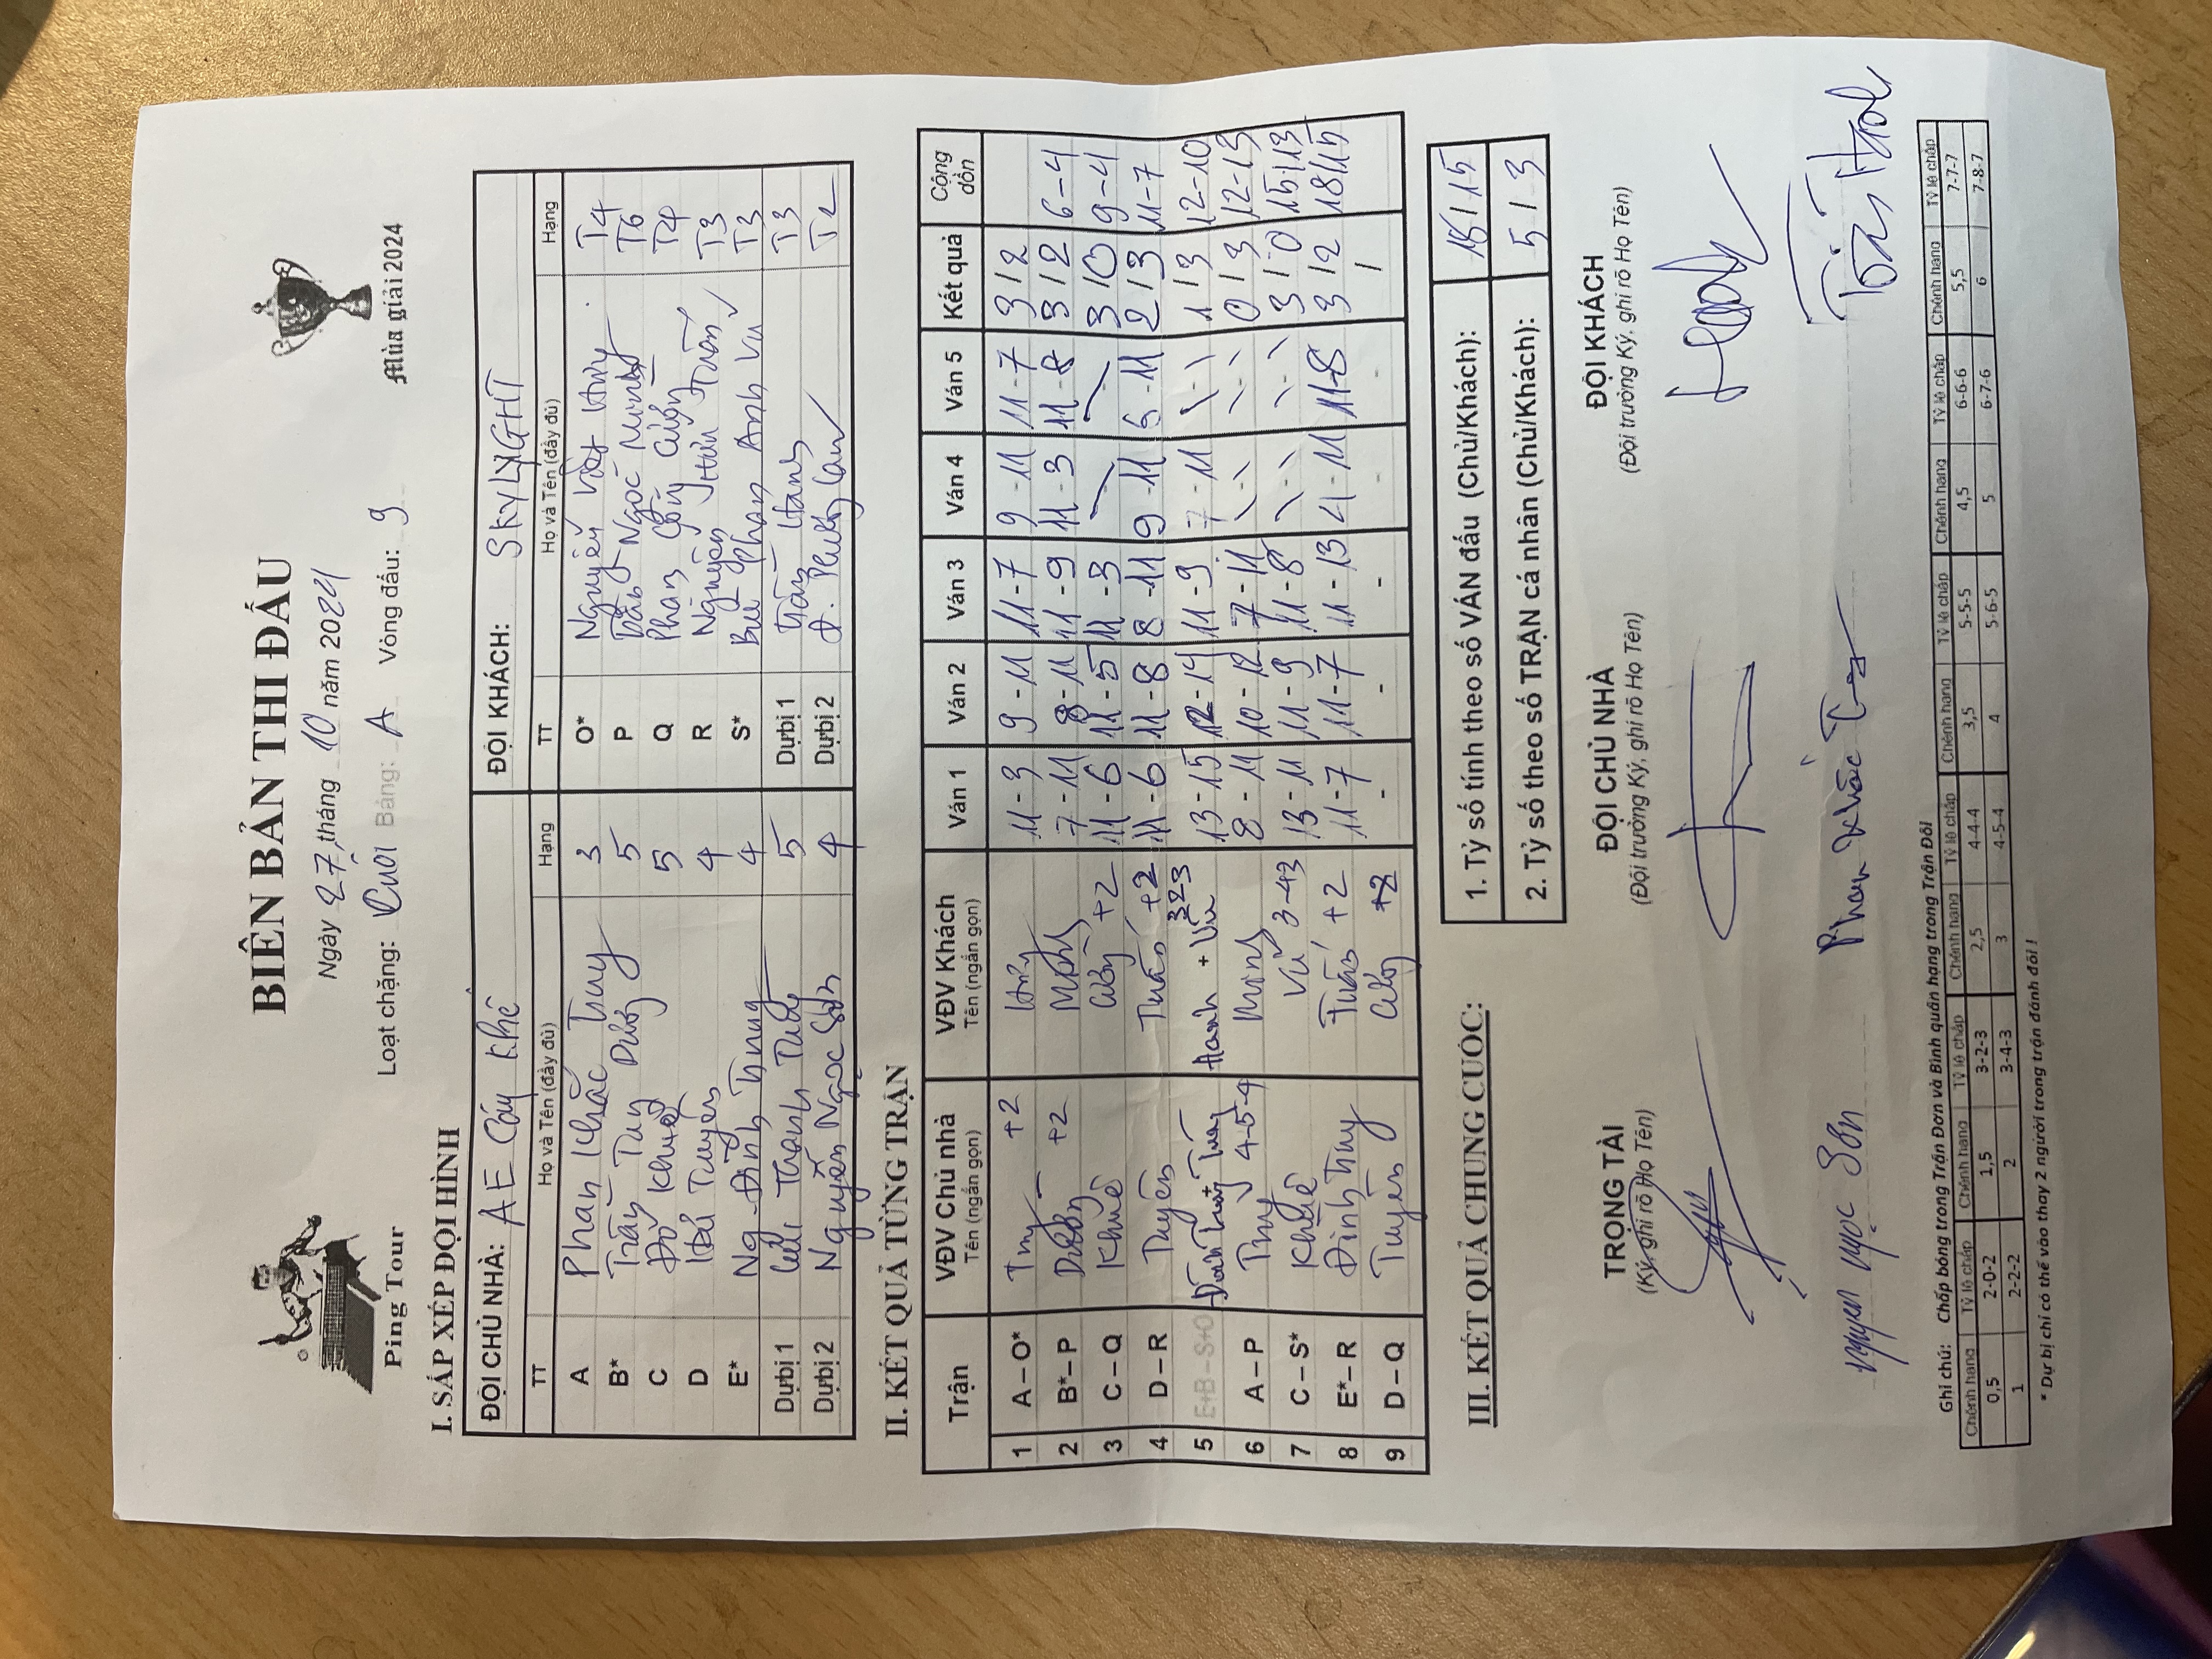 BIÊN BẢN THI ĐẤU
Ngày 27, tháng 10 năm 2024
Loạt chặng: Cuối Bảng: A Vòng đấu: 9
Ping Tour
Mùa giải 2024
I. SẮP XẾP ĐỘI HÌNH
ĐỘI CHỦ NHÀ: AE Cây Khế ĐỘI KHÁCH: SKYLYGHT
TT Họ và Tên (đầy đủ) Hạng TT Họ và Tên (đầy đủ) Hạng
A Phan Khắc Thuy 3 O* Nguyễn Việt Hưng T4
B* Trần Tuy 5 P Trần Ngọc Minh T6
C Đỗ Khuê 5 Q Phan Công Cường T4
D Hải Tuyên 4 R Nguyễn Hữu Tuấn T3
E* Ng. Đình Trung 4 S* Bùi Phan Anh Vũ T3
Dự bị 1 Thanh 5 Dự bị 1 Trần Hạnh T3
Dự bị 2 Nguyễn Ngọc Sơn 4 Dự bị 2 T2
II. KẾT QUẢ TỪNG TRẬN
Trận VĐV Chủ nhà Tên (ngắn gọn) VĐV Khách Tên (ngắn gọn) Ván 1 Ván 2 Ván 3 Ván 4 Ván 5 Kết quả Cộng dồn
1 A – O* +2 Hưng 11 - 3 9 - 11 11 - 7 9 - 11 11 - 7 3 / 2
2 B* – P +2 Minh 7 - 11 8 - 11 11 - 9 11 - 3 11 - 8 3 / 2 6 - 4
3 C – Q Khuê Cường +2 11 - 6 11 - 5 11 - 3 3 / 0 9 - 4
4 D – R Tuyên Tuấn +2 11 - 6 11 - 8 8 - 11 9 - 11 6 - 11 2 / 3 11 - 7
5 E+B – S+O Hạnh + Vũ 323 13 - 15 12 - 14 11 - 9 7 - 11 1 / 3 12 - 10
6 A – P Thuy 4-5-4 Minh 8 - 11 10 - 12 7 - 11 0 / 3 12 - 13
7 C – S* Khuê Vũ 3-43 13 - 11 11 - 9 11 - 8 3 / 0 15 / 13
8 E* – R Đình Trung Tuấn +2 11 - 7 11 - 7 11 - 13 4 - 11 11 - 8 3 / 2 18 / 15
9 D – Q Tuyên Cường +2 - - - - - /
III. KẾT QUẢ CHUNG CUỘC:
1. Tỷ số tính theo số VÁN đấu (Chủ/Khách): 18 / 15
2. Tỷ số theo số TRẬN cá nhân (Chủ/Khách): 5 / 3
TRỌNG TÀI ĐỘI CHỦ NHÀ ĐỘI KHÁCH
(Ký, ghi rõ Họ Tên) (Đội trưởng Ký, ghi rõ Họ Tên) (Đội trưởng Ký, ghi rõ Họ Tên)
Nguyen Ngọc Sơn Phan Khắc
Ghi chú: Chấp bóng trong Trận Đơn và Bình quân hạng trong Trận Đôi
Chênh hạng Tỷ lệ chấp Chênh hạng Tỷ lệ chấp Chênh hạng Tỷ lệ chấp Chênh hạng Tỷ lệ chấp Chênh hạng Tỷ lệ chấp Chênh hạng Tỷ lệ chấp
0,5 2-0-2 1,5 3-2-3 2,5 4-4-4 3,5 5-5-5 4,5 6-6-6 5,5 7-7-7
1 2-2-2 2 3-4-3 3 4-5-4 4 5-6-5 5 6-7-6 6 7-8-7
* Dự bị chỉ có thể vào thay 2 người trong trận đánh đôi !